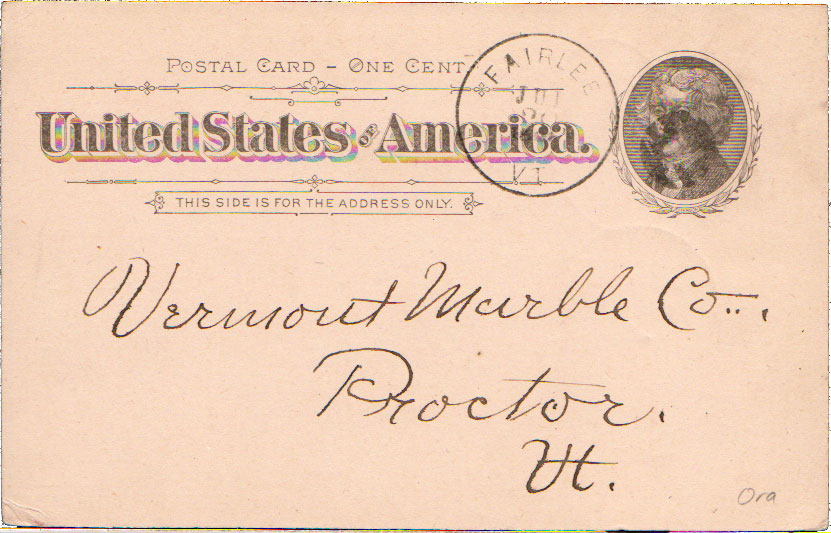 POSTAL CARD - ONE CENT
United States of America.
THIS SIDE IS FOR THE ADDRESS ONLY.
FAIRLEE
VT
Vermont Marble Co.,
Proctor.
Vt.
Ora